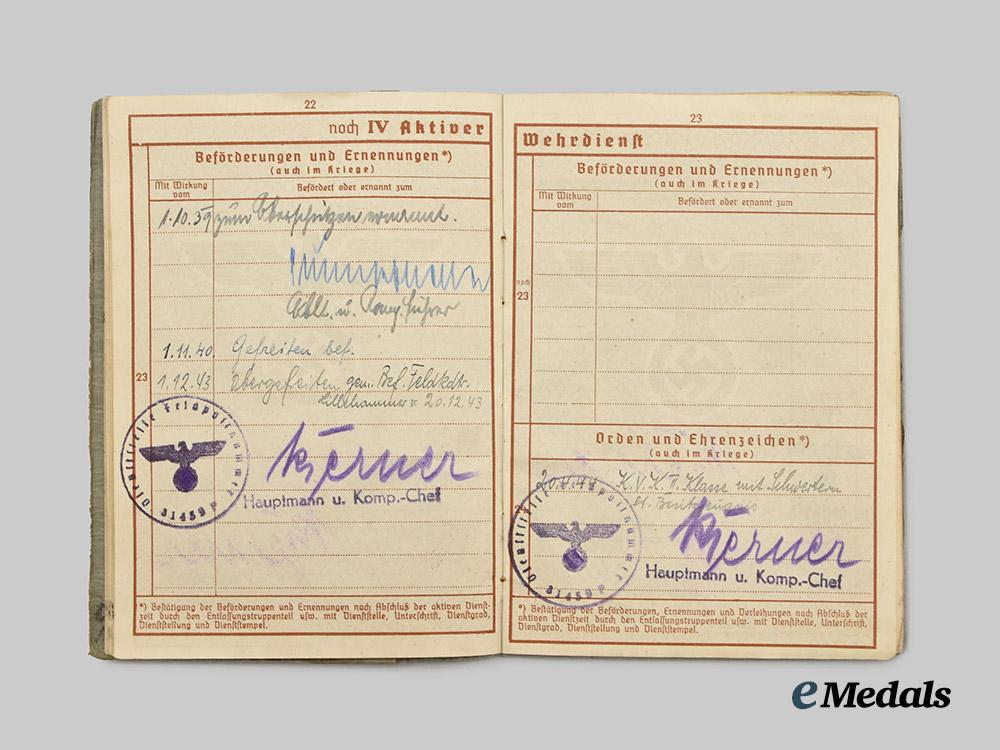 22
noch IV Aktiver
Beförderungen und Ernennungen*)
(auch im Kriege)
Mit Wirkung vom
Befördert oder ernannt zum
1.10.39 zum Oberschützen ernannt.
u. Komp. Führer
1.11.40. Gefreiten bef.
23
1.12.43 Obergefreiten gem. Bef. Feldkdtr.
Lillehammer v. 20.12.43
Dienststelle Feldpostnummer
31459 P
Kjerner
Hauptmann u. Komp.-Chef
*) Bestätigung der Beförderungen und Ernennungen nach Abschluß der aktiven Dienst-
zeit durch den Entlassungstruppenteil usw. mit Dienststelle, Unterschrift, Dienstgrad,
Dienststellung und Dienststempel.
23
Wehrdienst
Beförderungen und Ernennungen*)
(auch im Kriege)
Mit Wirkung vom
Befördert oder ernannt zum
noch
23
Orden und Ehrenzeichen*)
(auch im Kriege)
K.V.K. II. Klasse mit Schwertern
lt. Besitzzeugnis
Dienststelle Feldpostnummer
31459 P
Kjerner
Hauptmann u. Komp.-Chef
*) Bestätigung der Beförderungen, Ernennungen und Verleihungen nach Abschluß der
aktiven Dienstzeit durch den Entlassungstruppenteil usw. mit Dienststelle, Unterschrift,
Dienstgrad, Dienststellung und Dienststempel.
eMedals